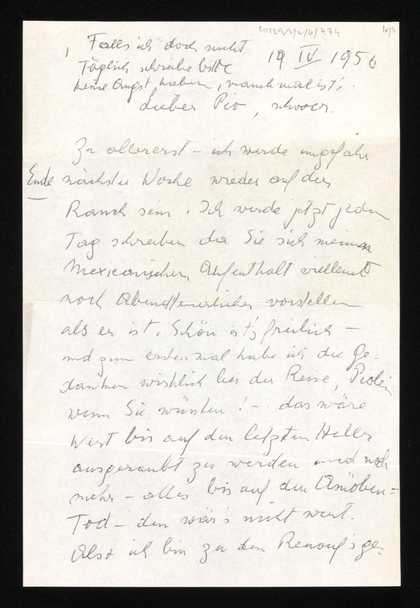 Falls ich doch nicht
19 IV 1956
Täglich schreibe bitte
keine Angst haben, manchmal ist's
Lieber Pio, schwer.
Zu allererst – ich werde ungefähr
Ende nächster Woche wieder auf der
Ranch sein. Ich werde jetzt jeden
Tag schreiben da Sie sich meinen
Mexicanischen Aufenthalt vielleicht
noch Abendteuerlicher vorstellen
als er ist. Schön ist's freilich –
und zum ersten mal habe ich die Ge-
danken wirklich bei der Reise,
wenn Sie wüssten! – das wäre
Wert bis auf den letzten Heller
ausgeraubt zu werden und noch
mehr – alles bis auf den Amöben-
Tod – den wär's nicht wert.
Also ich bin zu den Renouf's ge-